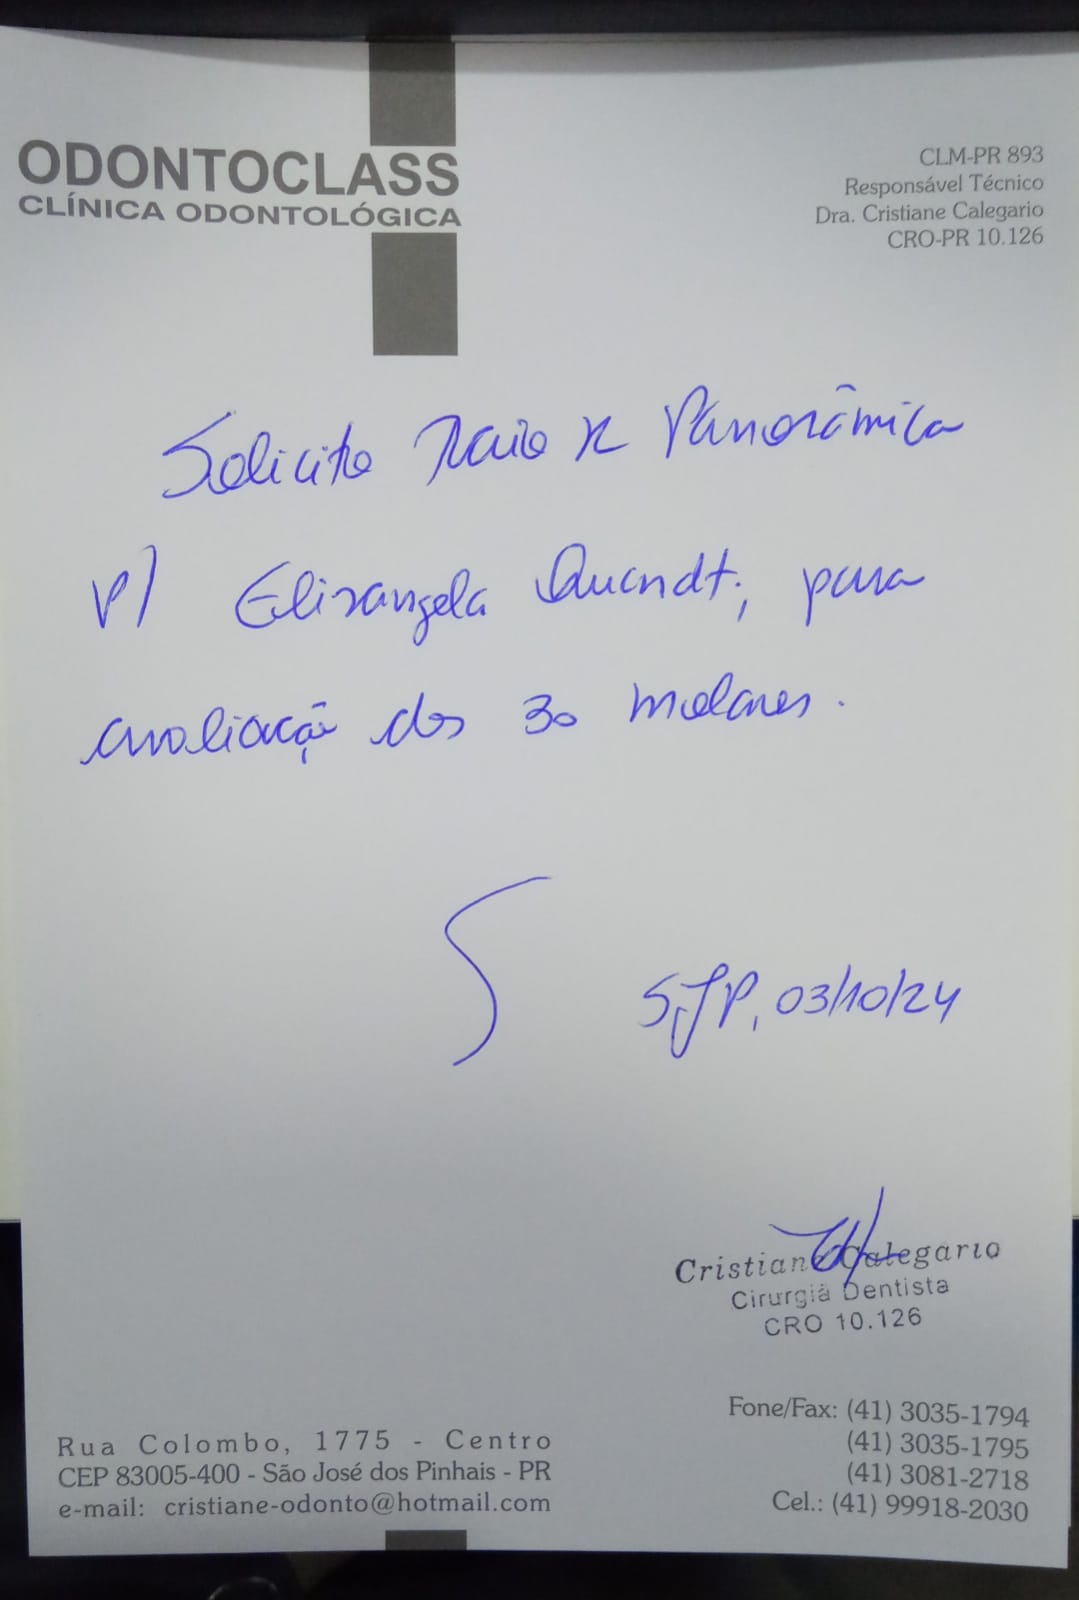 ODONTOCLASS
CLÍNICA ODONTOLÓGICA
CLM-PR 893
Responsável Técnico
Dra. Cristiane Calegario
CRO-PR 10.126
Solicito Raio X Panorâmica
p/ Elisangela Quandt, para
avaliação dos 3os molares.
SJP, 03/10/24
Cristiane Calegario
Cirurgiã Dentista
CRO 10.126
Rua Colombo, 1775 - Centro
CEP 83005-400 - São José dos Pinhais - PR
e-mail: cristiane-odonto@hotmail.com
Fone/Fax: (41) 3035-1794
(41) 3035-1795
(41) 3081-2718
Cel.: (41) 99918-2030